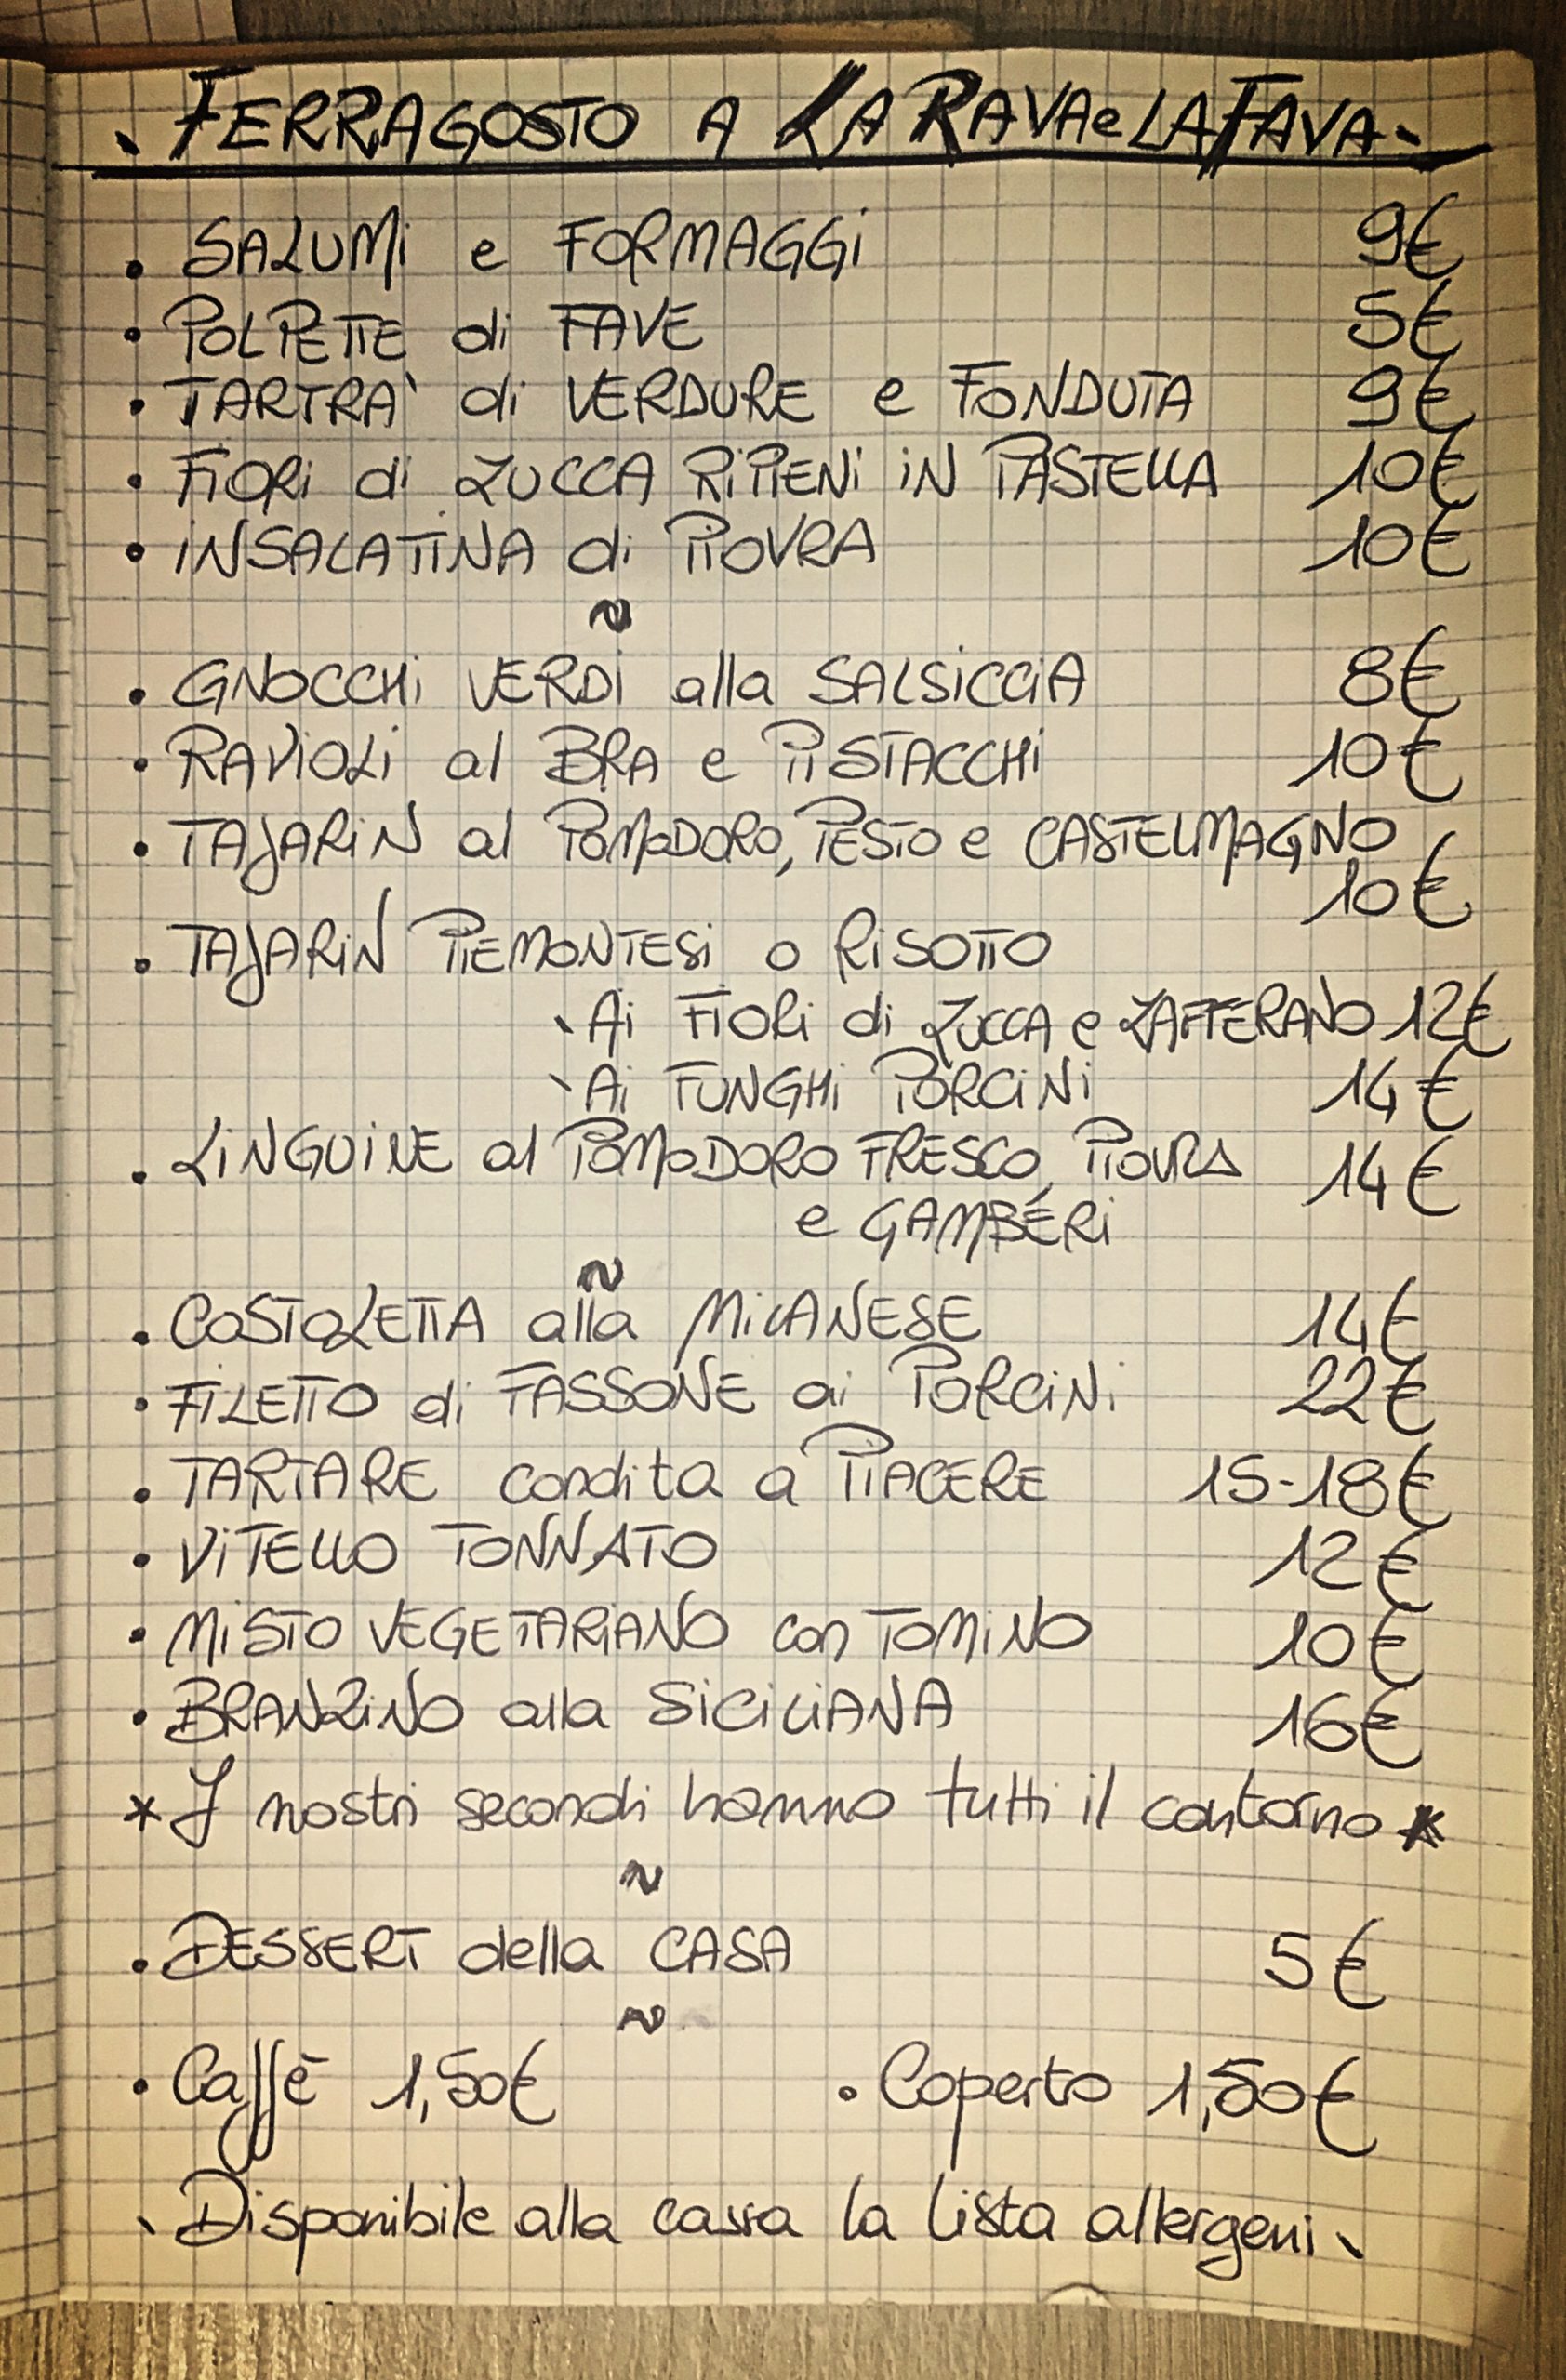 - FERRAGOSTO A LA RAVA e LA FAVA -
• SALUMI e FORMAGGI 9€
• POLPETTE di FAVE 5€
• TARTRA' di VERDURE e FONDUTA 9€
• FIORI di ZUCCA RIPIENI IN PASTELLA 10€
• INSALATINA di PIOVRA 10€
~
• GNOCCHI VERDI alla SALSICCIA 8€
• RAVIOLI al BRA e PISTACCHI 10€
• TAJARIN al POMODORO, PESTO e CASTELMAGNO
10€
• TAJARIN PIEMONTESI o RISOTTO
- Ai FIORI di ZUCCA e ZAFFERANO 12€
- Ai FUNGHI PORCINI 14€
• LINGUINE al POMODORO FRESCO, PIOVRA 14€
e GAMBERI
~
• COSTOLETTA alla MILANESE 14€
• FILETTO di FASSONE ai PORCINI 22€
• TARTARE condita a PIACERE 15-18€
• VITELLO TONNATO 12€
• MISTO VEGETARIANO con TOMINO 10€
• BRANZINO alla SICILIANA 16€
* I nostri secondi hanno tutti il contorno *
~
• DESSERT della CASA 5€
~
• Caffè 1,50€ • Coperto 1,50€
- Disponibile alla cassa la lista allergeni -